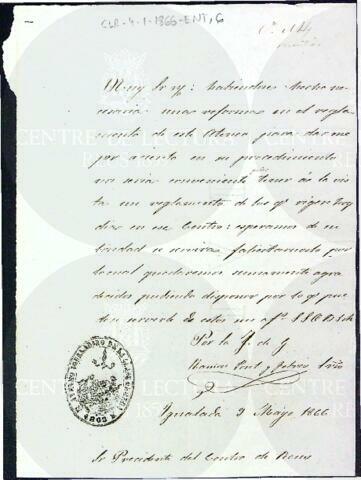 CLR-4-1-1866-ENT, 6
Muy Sr. mio: habiendose hecho ne-
cesaria una reforma en el regla-
mento de este Ateneo para dar me-
jor acierto en su procedimiento
nos seria conveniente tener á la vis-
ta un reglamento de los qe. rigen hoy
dia en ese Centro: esperamos de su
bondad se servirá facilitarnoslo por
lo cual quedaremos sumamente agra-
decidos pudiendo disponer por lo qe. pue-
dan servirle de estos sus afmos. S.S.Q.B.S.M.
Por la J. de G.
Igualada 9 Mayo 1866
Sr. Presidente del Centro de Reus
CENTRE DE LECTURA